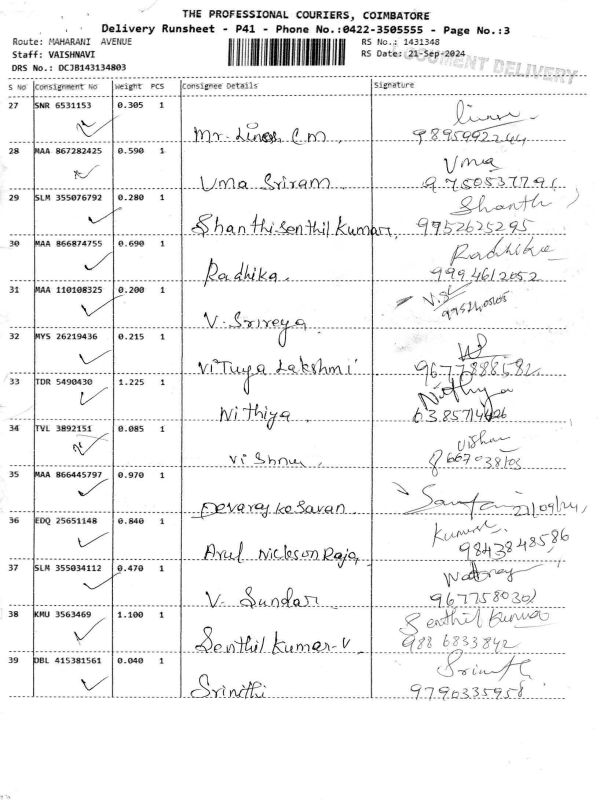 THE PROFESSIONAL COURIERS, COIMBATORE
Delivery Runsheet - P41 - Phone No.:0422-3505555 - Page No.:3
Route: MAHARANI AVENUE
RS No.: 1431348
Staff: VAISHNAVI
RS Date: 21-Sep-2024
DRS No.: DCJB143134803
DOCUMENT DELIVERY
S No Consignment No Weight PCS Consignee Details Signature
27 SNR 6531153 0.305 1
Mr. Linos C.M. 9895992244
28 MAA 867282425 0.590 1 Uma
Uma Sriram. 9750537791
29 SLM 355076792 0.280 1 Shanthi
Shanthi Senthil Kumar. 9952625295
30 MAA 866874755 0.690 1 Radhika
Radhika. 9994612052
31 MAA 110108325 0.200 1
V. Srireya
32 MYS 26219436 0.215 1
Vituya Lakshmi 9677888582
33 TDR 5490430 1.225 1 Nithiya
Nithiya
34 TVL 3892151 0.085 1 Vishnu
Vishnu.
35 MAA 866445797 0.970 1
Devaraj Kesavan. 21/09/24,
36 EDQ 25651148 0.840 1
Arul Nickson Raja, 9843848586
37 SLM 355034112 0.470 1
V. Sundar 9677580301
38 KMU 3563469 1.100 1 Senthil Kumar
Senthil Kumar-V 9886833842
39 DBL 415381561 0.040 1
Srinithi 9790335958